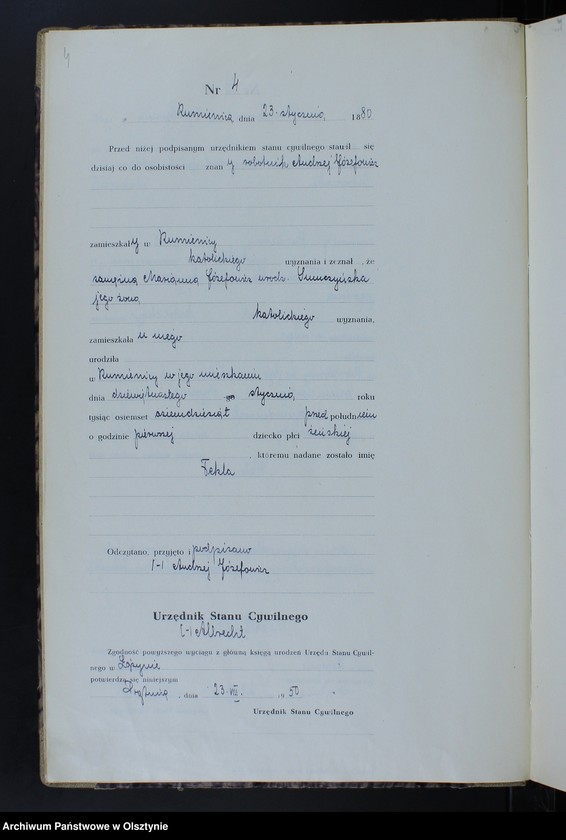 4
Nr 4
Rumienica dnia 23. stycznia 1880
Przed niżej podpisanym urzędnikiem stanu cywilnego stawił się
dzisiaj co do osobistości znany robotnik Andrzej Józefowicz
zamieszkały w Rumienicy
katolickiego wyznania i zeznał, że
zamężna Marianna Józefowicz urodz.
jego żona
katolickiego wyznania,
zamieszkała u niego
urodziła
w Rumienicy w jego mieszkaniu
dnia dziewiętnastego stycznia, roku
tysiąc osiemset osiemdziesiąt przed południem
o godzinie pierwszej dziecko płci żeńskiej
, któremu nadane zostało imię
Tekla
Odczytano, przyjęto i podpisano
(-) Andrzej Józefowicz
Urzędnik Stanu Cywilnego
(-) Albrecht
Zgodność powyższego wyciągu z główną księgą urodzeń Urzędu Stanu Cywil-
nego w
potwierdza się niniejszym
, dnia 23. VII. 1950
Urzędnik Stanu Cywilnego
Archiwum Państwowe w Olsztynie